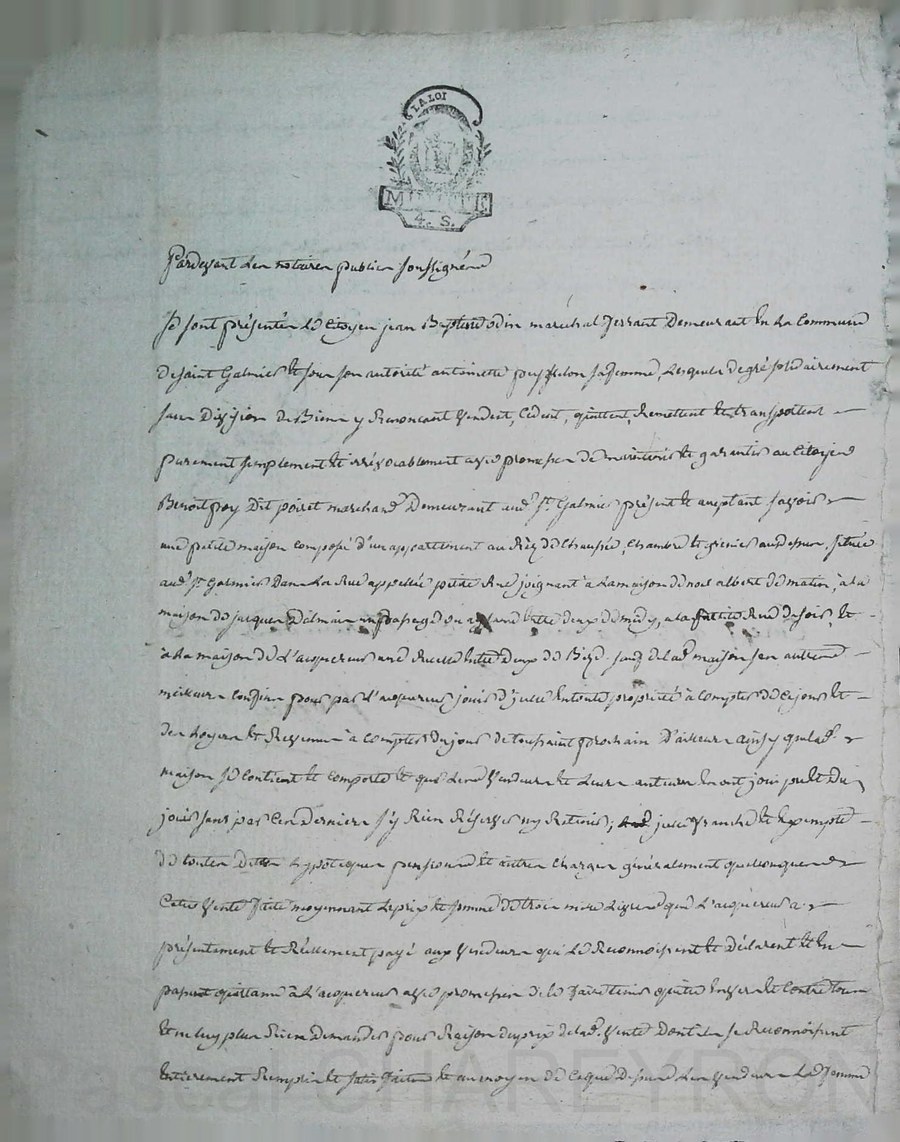 LA LOI
MINUTE
4. S.
Pardevant Les notaires publics soussignés
Se sont présentés Le Citoyen jean Baptiste odin maréchal ferrant Demeurant En La Commune
De Saint Galmier Et sous son autorité antoinette sa femme, Lesquels de gré solidairement
sans Division de Biens y Renoncant Vendent, Cédent, quittent, Remettent Et transportent
purement simplement Et irrévocablement avec promesse De maintenir Et garantir au Citoyen
Benoit Dit poiret marchand Demeurant aud. St. Galmier présent Et aceptant savoir
une petite maison composé d'un appartement au Rèz de Chaussée, Chambre Et grenier audessus, située
aud. St. Galmier Dans La Rue appellée petite Rue joignant à La maison de noel albert de matin, à la
maison de jacques un passage ou entre deux de midy, a la petite Rue de soir, Et
à La maison De L'acquereur une Ruelle Entre Deux de Bize. sauf de lad. maison ses autres
meilleurs confins pour par L'acquereur jouir d'ycelle En toute propriété à Compter de Ce jour Et
des Loyers Et Revenus à compter du jour de toussaint prochain D'ailleurs ainsy que lad.
maison se contient Et comporte Et que Les Vendeurs Et Leurs auteurs En ont joui pu Et Du
jouir sans par Ces Derniers s'y Rien Réserver ny Retenir; franche Et Exempte
de toutes Dettes hypoteques pensions Et autres charges généralement quelconques
Cette Vente faite moyennant Le prix Et somme de trois mille Livres que L'acquereur a
présentement Et Réellement payé aux Vendeurs qui Le Reconnoissent Et Déclarent Et En
passent quittance à L'acquereur avec promesse de le faire tenir quitte Envers Et Contre tous
Et ne luy plus Rien Demander pour Raison du prix de lad. Vente Dont ils se Reconnoissent
Entierement Remplis Et satisfaits Et au moyen de Ce que Dessus Les Vendeurs La femme
CHAREYRON